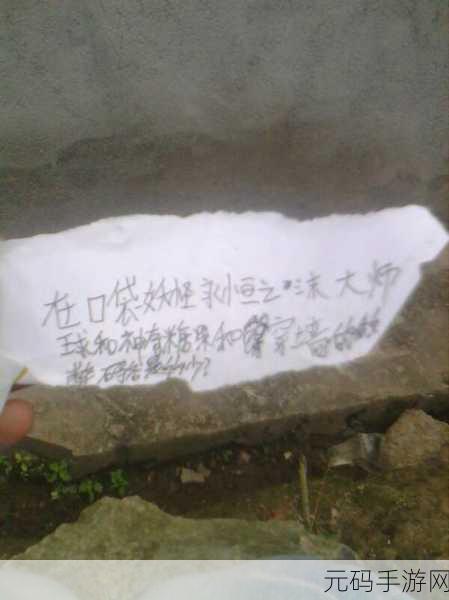 在口袋妖怪永恒之沫 大师
球和神奇糖果和穿墙的
码各是多少?
元码手游网